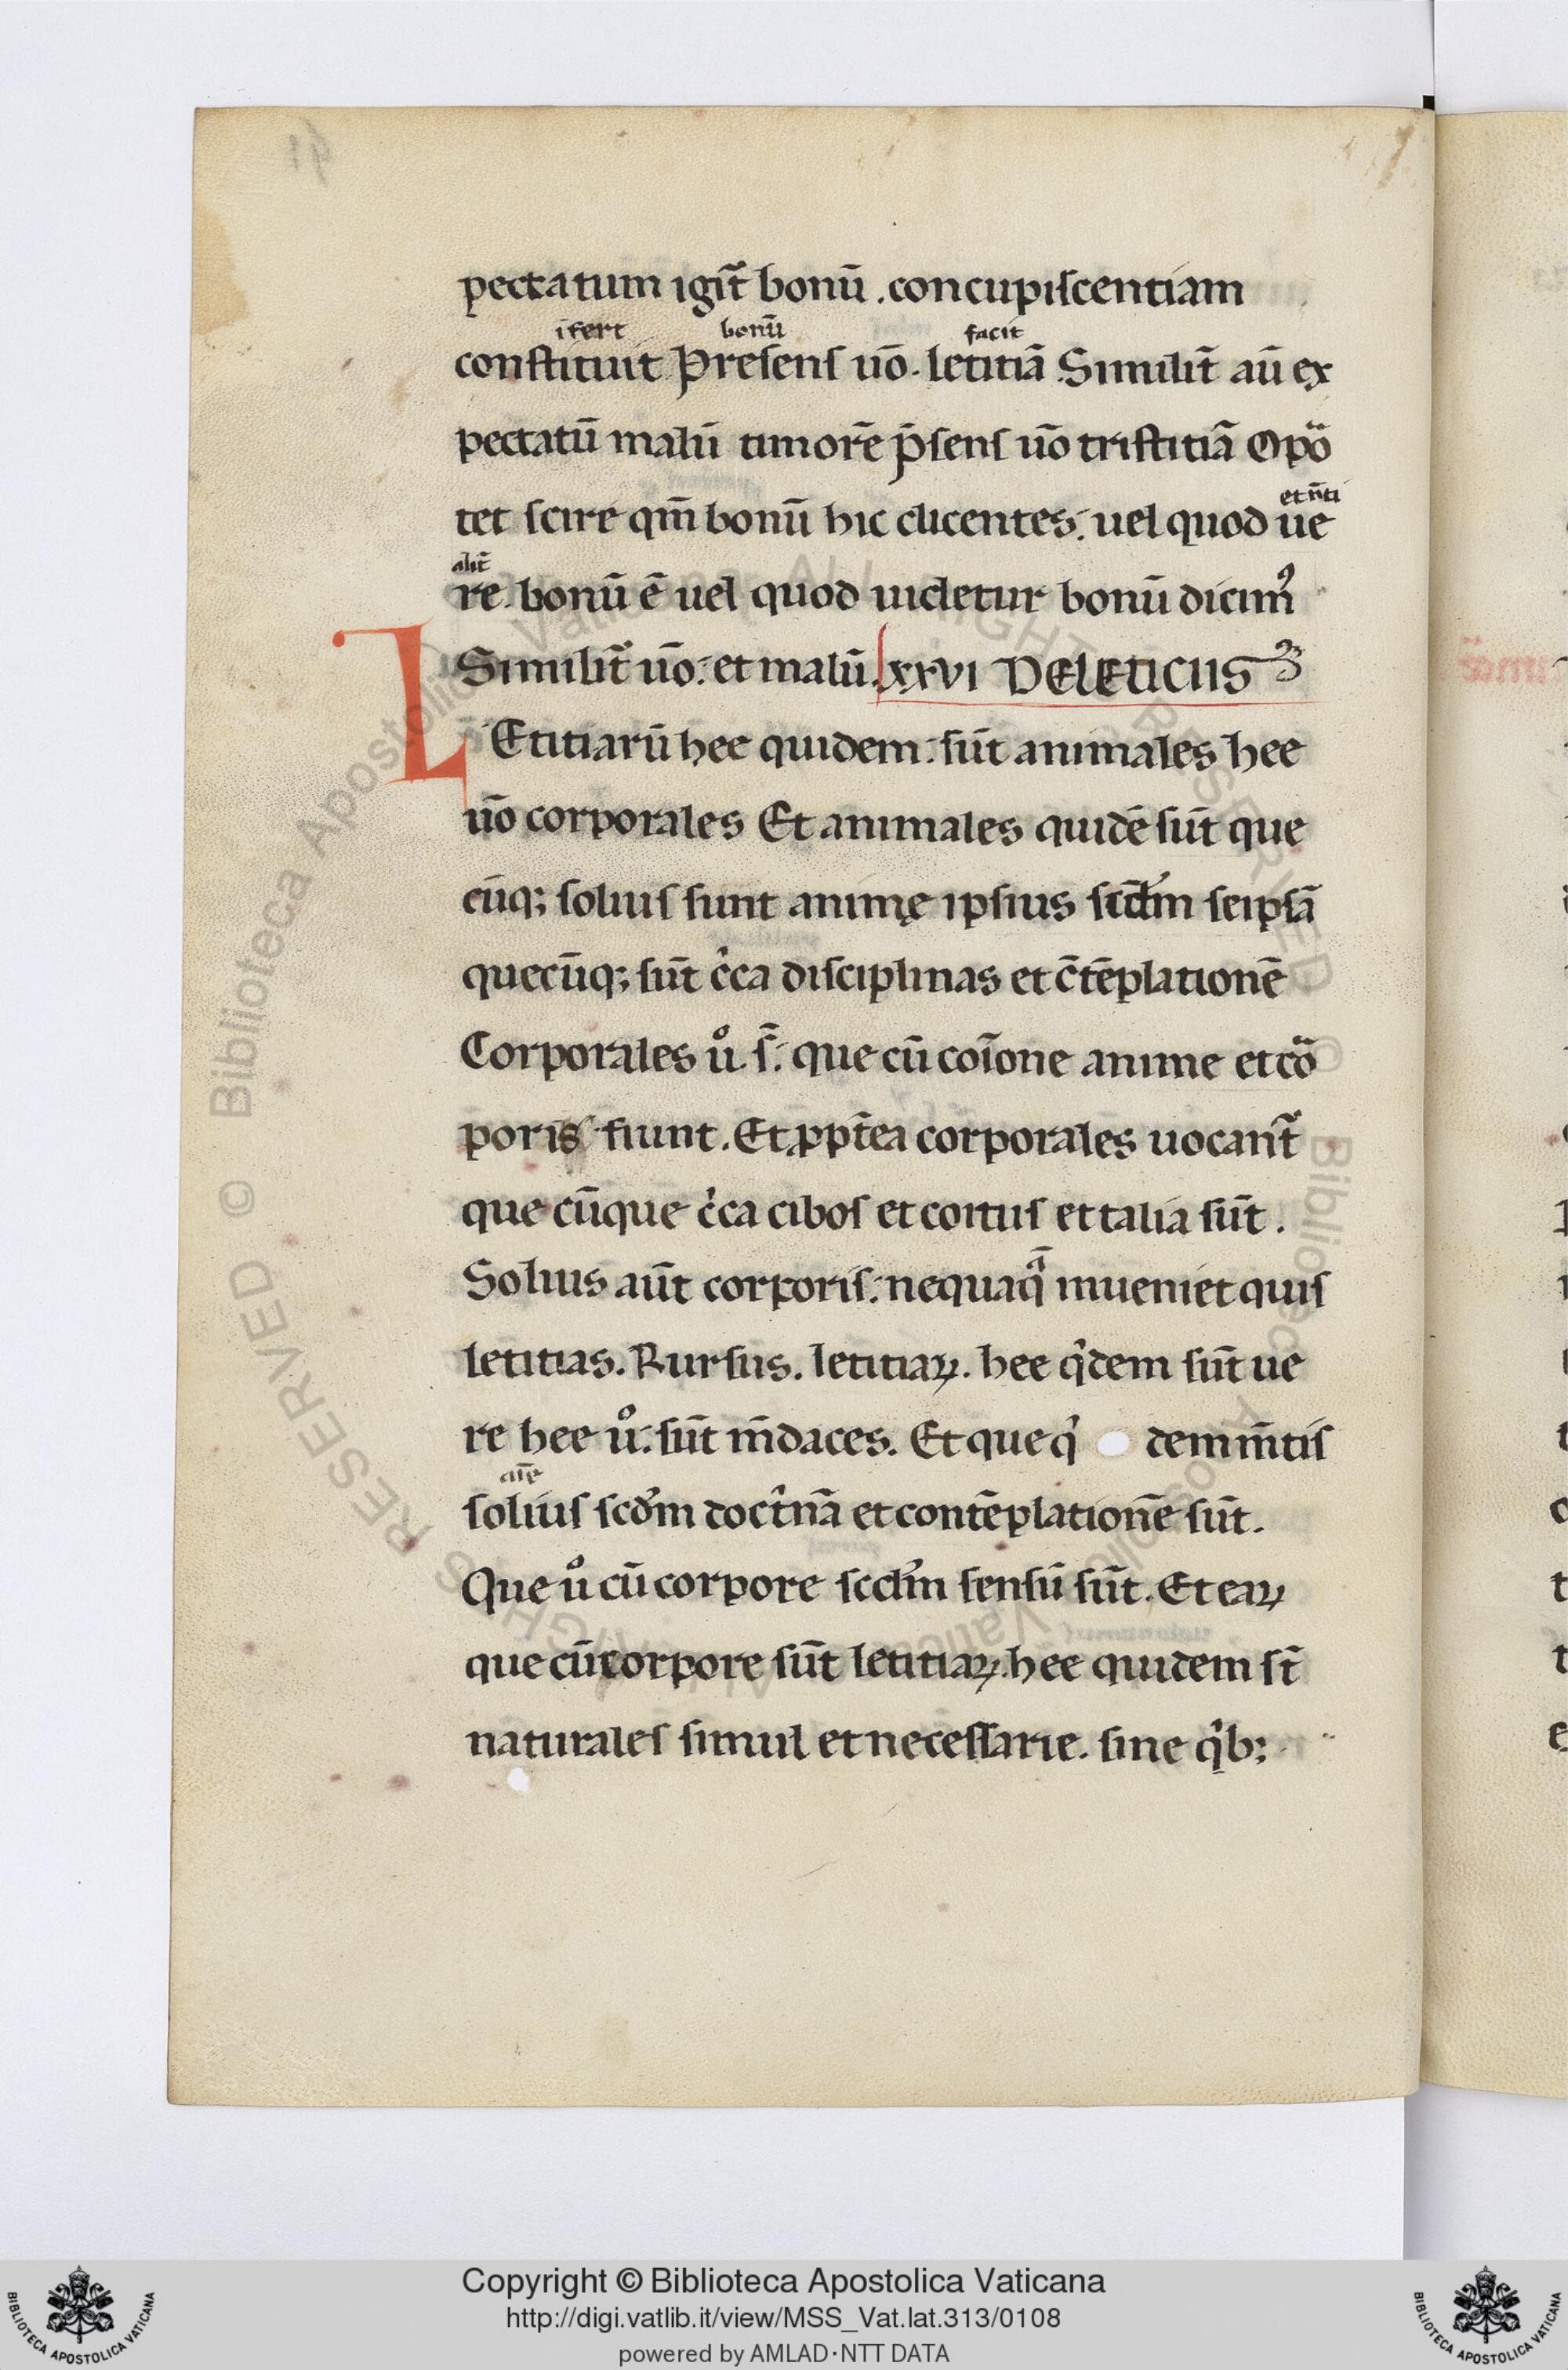 pectatum igit̃ bonū . concupiscentiam
ifert bonū facit
constituit Presens uō . letitiā Similit̃ aū ex
pectatū malū timorē p̄sens uō tristitiā Opō
et n̄ti
tet scire qm̄ bonū hic dicentes . uel quod ue
alit̃
re . bonū ē uel quod uidetur bonū dicim᾽
Similit̃ uō . et malū . lxxvi DE LETICIIS
LEtitiarū hee quidem . sūt animales hee
uō corporales Et animales quidē sūt que
cūq; solius sunt animę ipsius scd̄m seipsā
quecūq; sūt cͥca disciplinas et c̄tēplationē
Corporales uͦ . s̄ . que cū coīone anime et cō
poris fiunt . Et ꝓpt̄ea corporales uocant̃
que cūque cͥca cibos et coitus et talia sūt .
Solius aūt corporis . nequaq̄ inueniet quis
letitias . Rursus . letitiaꝝ . hee qͥdem sūt ue
re hee uͦ . sūt m̄daces . Et que qͥ dem m̄tis
aīę
solius scd̄m doctͥnā et contēplationē sūt .
Que uͦ cū corpore scd̄m sensū sūt . Et eaꝝ
que cū corpore sūt letitiaꝝ . hee quidem st̄
naturales simul et necessarie . sine qͥb;
© Biblioteca Apostolica Vaticana ALL RIGHTS RESERVED
Copyright © Biblioteca Apostolica Vaticana
http://digi.vatlib.it/view/MSS_Vat.lat.313/0108
powered by AMLAD·NTT DATA
BIBLIOTECA APOSTOLICA VATICANA
BIBLIOTECA APOSTOLICA VATICANA